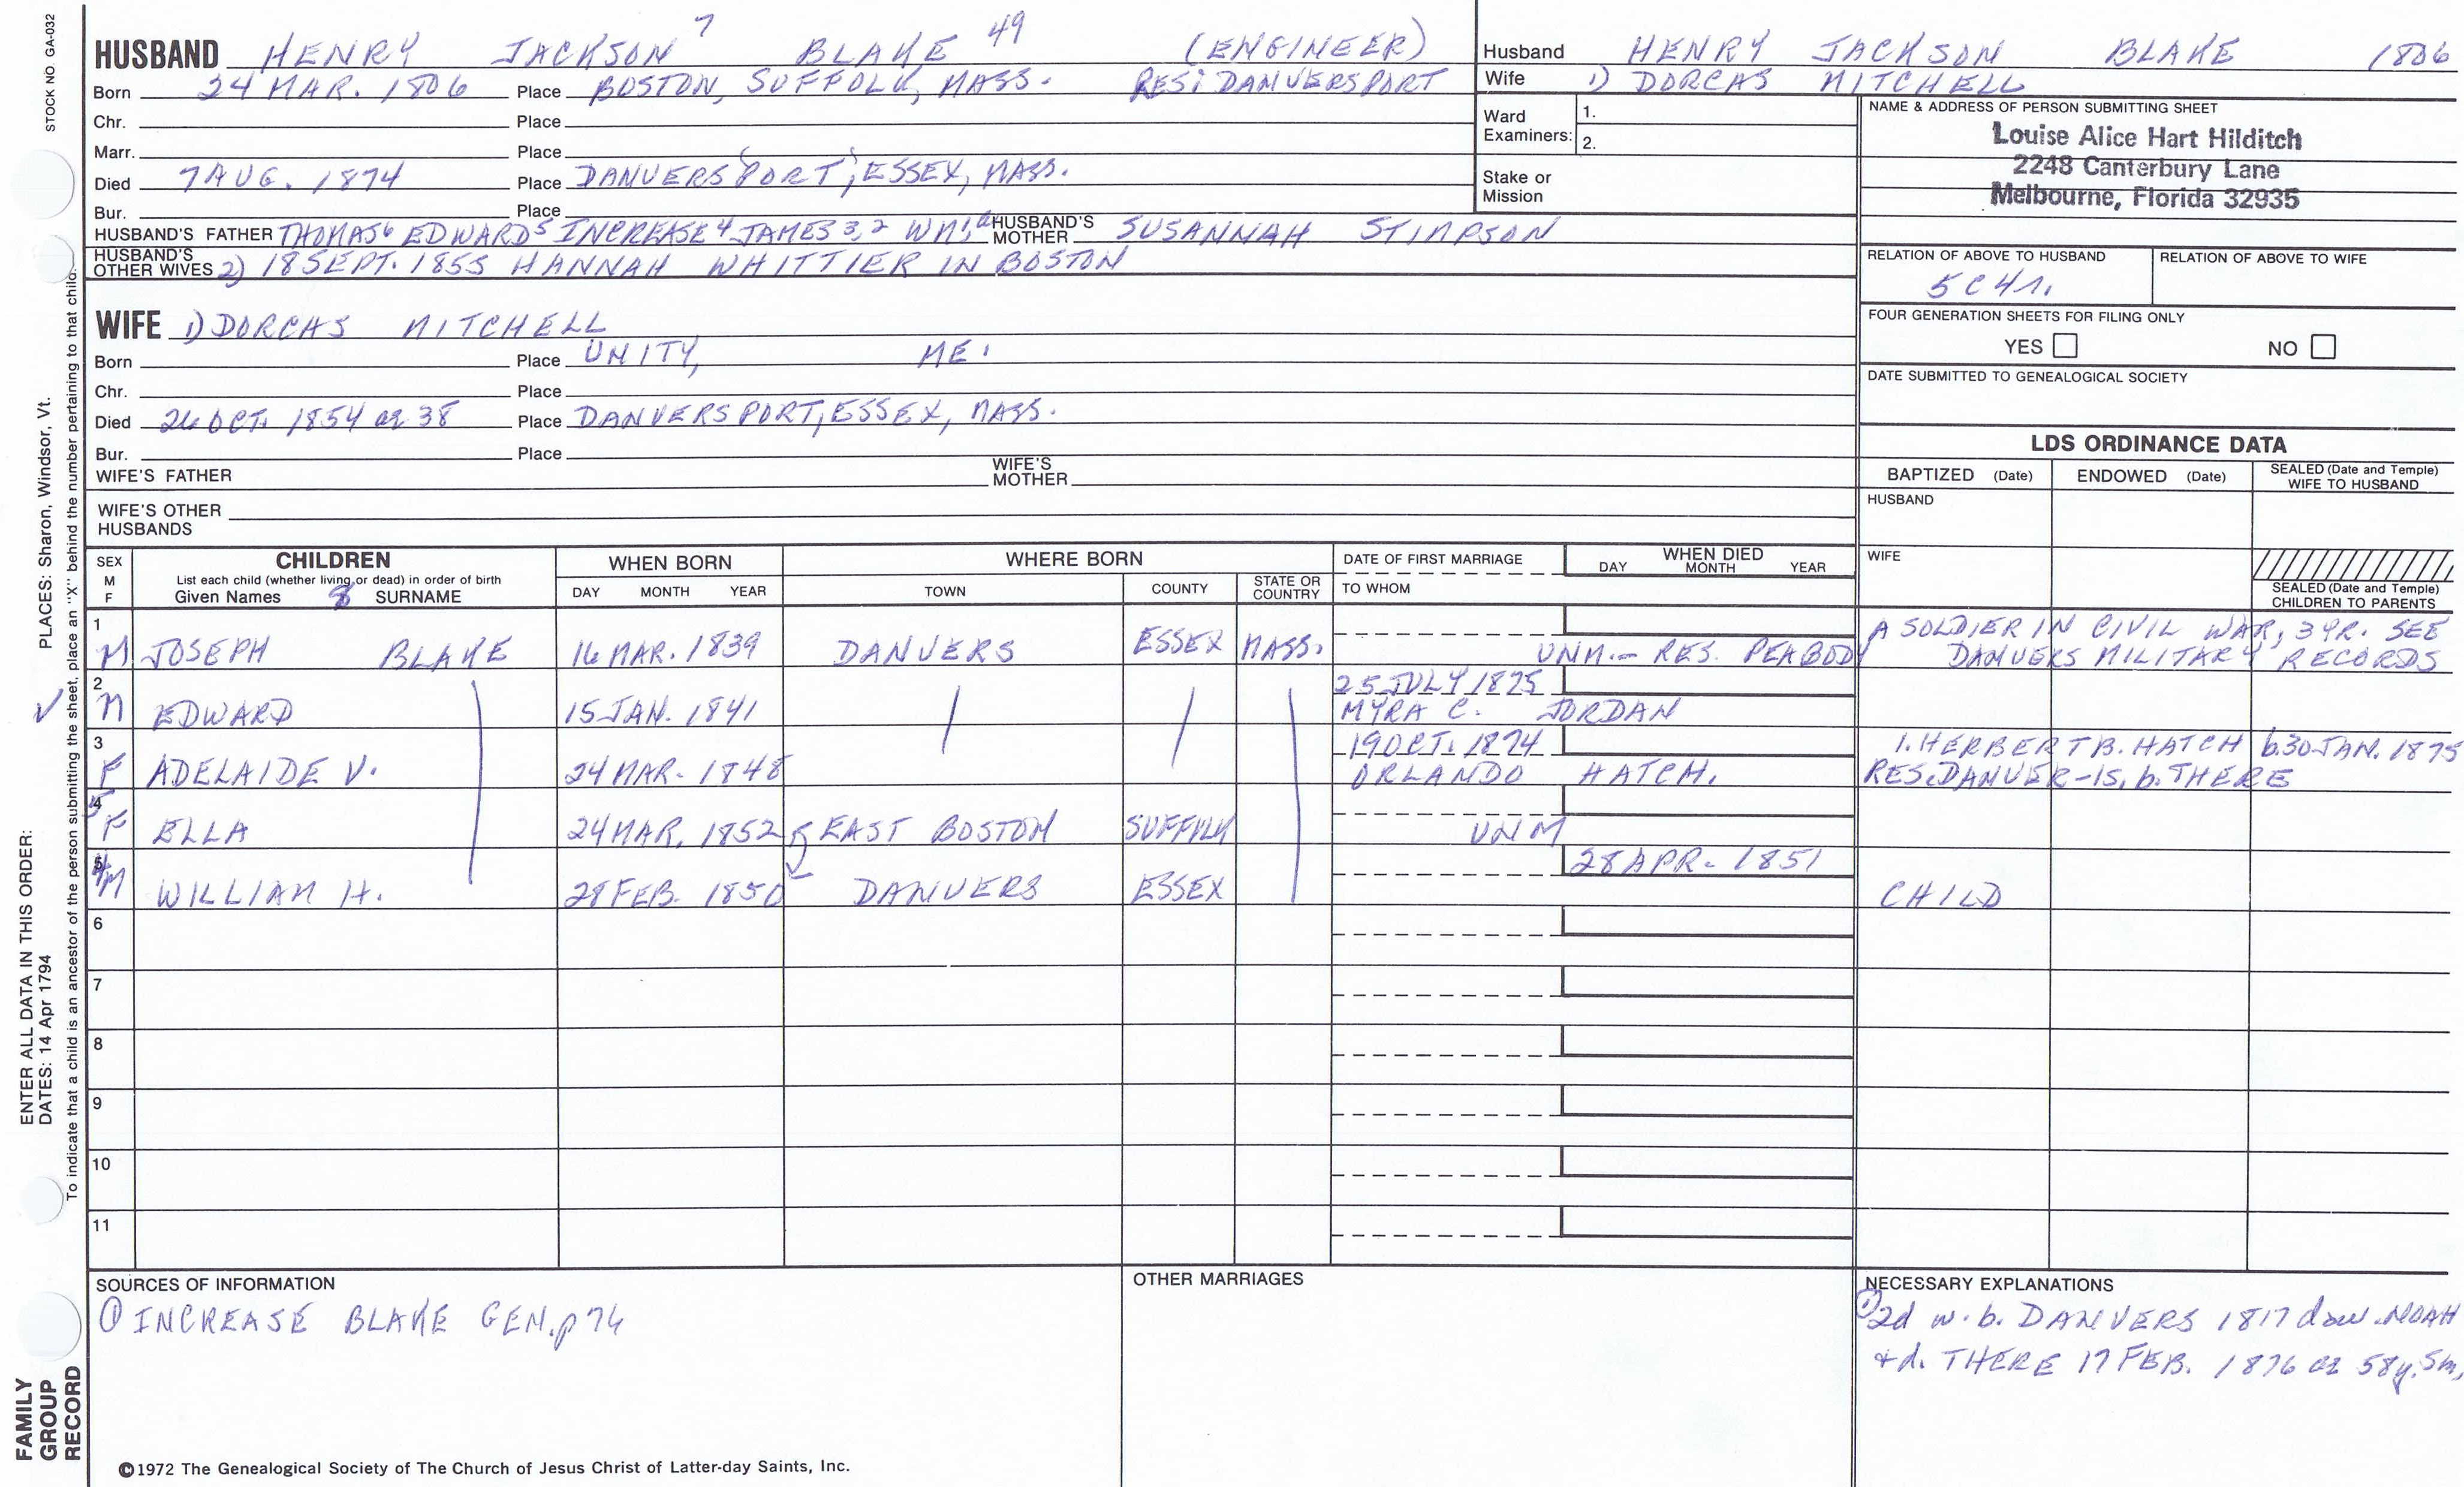 STOCK NO. GA-032
HUSBAND HENRY JACKSON 7 BLAKE 49 (ENGINEER)
Born 24 MAR. 1806 Place BOSTON, SUFFOLK, MASS. RES: DANVERSPORT
Chr. Place
Marr. Place
Died 7 AUG. 1874 Place DANVERSPORT, ESSEX, MASS.
Bur. Place
HUSBAND'S FATHER THOMAS6 EDWARD5 INCREASE4 JAMES3,2 WM1 HUSBAND'S MOTHER SUSANNAH STIMPSON
HUSBAND'S OTHER WIVES 2) 18 SEPT. 1855 HANNAH WHITTIER IN BOSTON
WIFE 1) DORCAS MITCHELL
Born Place UNITY, ME.
Chr. Place
Died 26 OCT. 1854 ae 38 Place DANVERSPORT, ESSEX, MASS.
Bur. Place
WIFE'S FATHER WIFE'S MOTHER
WIFE'S OTHER HUSBANDS
Husband HENRY JACKSON BLAKE 1806
Wife 1) DORCAS MITCHELL
Ward Examiners: 1.
2.
Stake or Mission
NAME & ADDRESS OF PERSON SUBMITTING SHEET
Louise Alice Hart Hilditch
2248 Canterbury Lane
Melbourne, Florida 32935
RELATION OF ABOVE TO HUSBAND RELATION OF ABOVE TO WIFE
5C4r.
FOUR GENERATION SHEETS FOR FILING ONLY
YES NO
DATE SUBMITTED TO GENEALOGICAL SOCIETY
LDS ORDINANCE DATA
BAPTIZED (Date) ENDOWED (Date) SEALED (Date and Temple) WIFE TO HUSBAND
HUSBAND
WIFE
SEALED (Date and Temple) CHILDREN TO PARENTS
SEX M F
CHILDREN
List each child (whether living or dead) in order of birth
Given Names 8 SURNAME
WHEN BORN
DAY MONTH YEAR
WHERE BORN
TOWN COUNTY STATE OR COUNTRY
DATE OF FIRST MARRIAGE
TO WHOM
WHEN DIED
DAY MONTH YEAR
1 M JOSEPH BLAKE 16 MAR. 1839 DANVERS ESSEX MASS. UNM.- RES. PEABODY A SOLDIER IN CIVIL WAR, 3 YR. SEE
DANVERS MILITARY RECORDS
2 25 JULY 1875
M EDWARD 15 JAN. 1841 MYRA C. JORDAN
3 19 OCT. 1874 1. HERBERT B. HATCH b. 30 JAN. 1875
F ADELAIDE V. 24 MAR. 1848 ORLANDO HATCH. RES. DANVER-IS, b. THERE
4 5 F ELLA 24 MAR. 1852 EAST BOSTON SUFFOLK UNM
5 4 28 APR. 1851
M WILLIAM H. 28 FEB. 1850 DANVERS ESSEX CHILD
6
7
8
9
10
11
SOURCES OF INFORMATION
① INCREASE BLAKE GEN. p 74
OTHER MARRIAGES
NECESSARY EXPLANATIONS
① 2d w. b. DANVERS 1817 dau. NOAH
+ d. THERE 17 FEB. 1876 ae 58y. 5m,
©1972 The Genealogical Society of The Church of Jesus Christ of Latter-day Saints, Inc.
FAMILY GROUP RECORD
ENTER ALL DATA IN THIS ORDER:
DATES: 14 Apr 1794
PLACES: Sharon, Windsor, Vt.
To indicate that a child is an ancestor of the person submitting the sheet, place an "X" behind the number pertaining to that child.